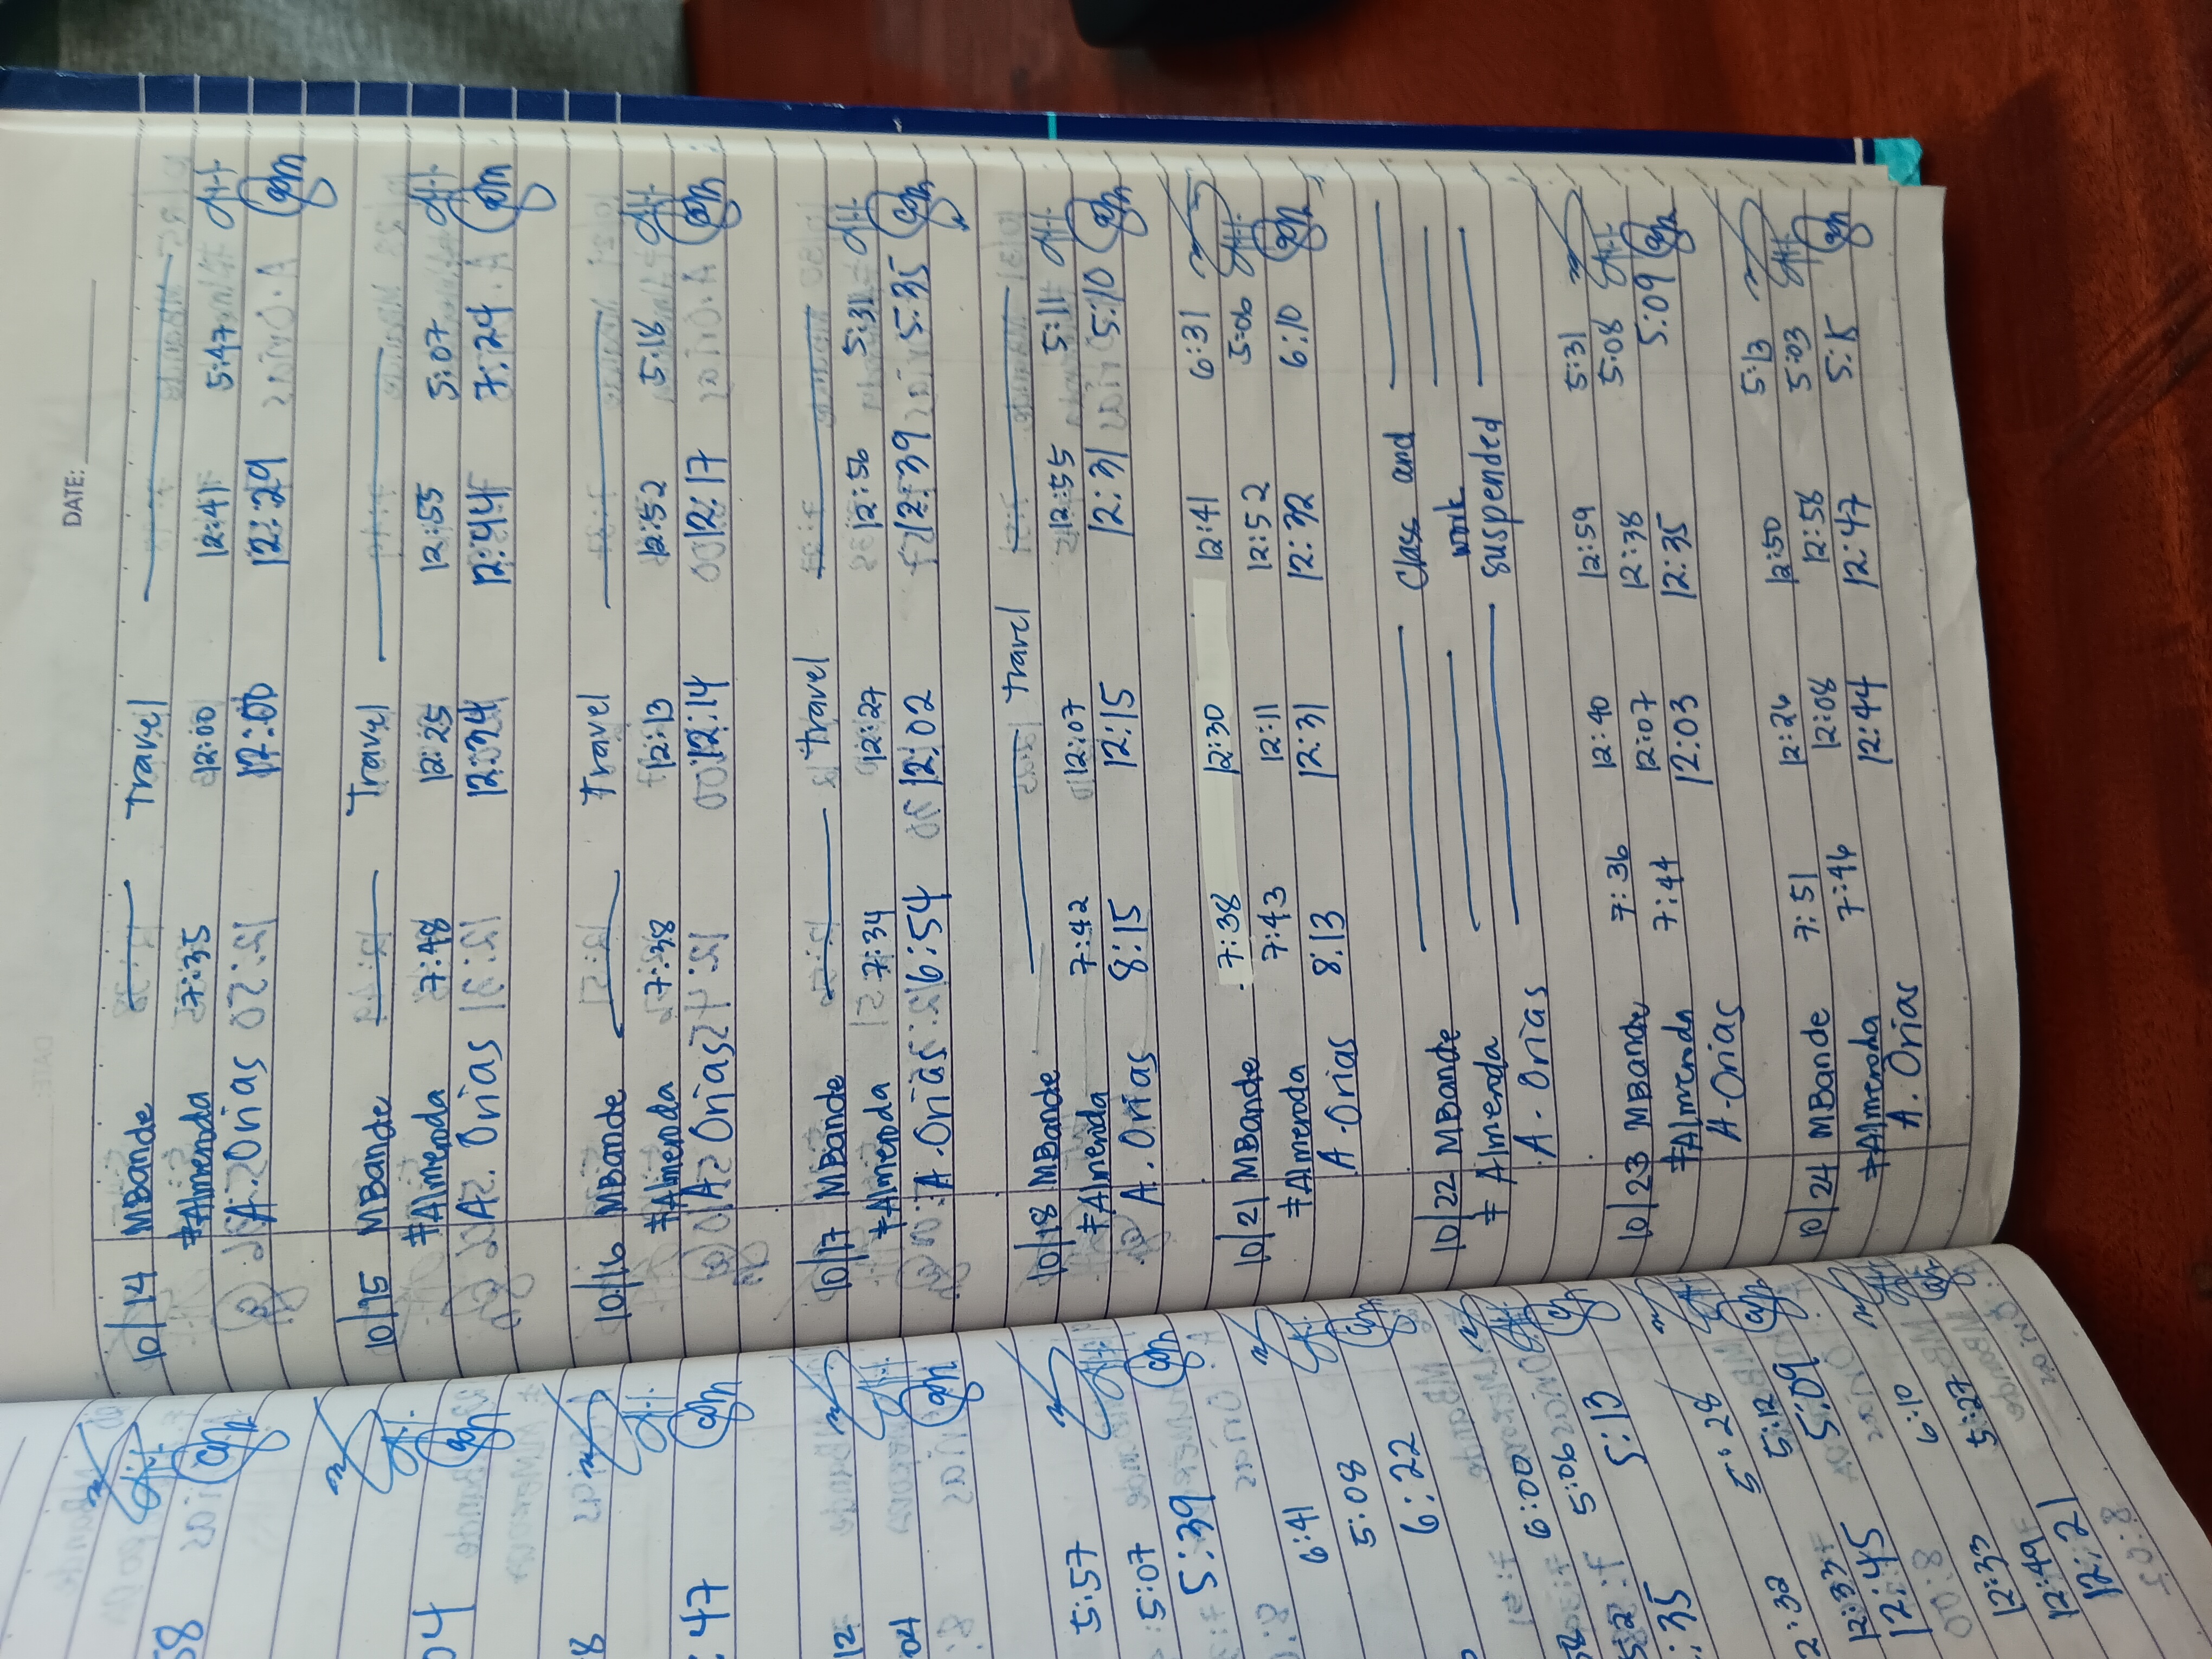 DATE:
10/14 MBande Travel
#Almenda 7:35 12:00 12:41 5:47
A. Orias 12:00 12:29
10/15 MBande Travel
#Almenda 7:48 12:25 12:55 5:07
A. Orias 12:34 12:44 7:24
10/16 MBande Travel
#Almenda 7:38 12:13 12:52 5:18
A. Orias 12:14 12:17
10/17 MBande Travel
#Almenda 7:34 12:27 12:56 5:31
A. Orias 6:54 12:02 12:39 5:35
10/18 MBande Travel
#Almenda 7:42 12:07 12:55 5:11
A. Orias 8:15 12:15 12:31 5:10
10/21 MBande 7:38 12:30 12:41 6:31
#Almenda 7:43 12:11 12:52 5:06
A. Orias 8:13 12:31 12:32 6:10
10/22 MBande Class and
# Almenda work
A. Orias suspended
10/23 MBande 7:36 12:40 12:59 5:31
#Almenda 7:44 12:07 12:38 5:08
A. Orias 12:03 12:35 5:09
10/24 MBande 7:51 12:26 12:50 5:13
#Almenda 7:46 12:08 12:58 5:03
A. Orias 12:44 12:47 5:15
58
04
8
:47
12
04
5:57
5:07
5:39
6:41
5:08
6:22
6:00
5:06
:35 5:13
2:32 5:28
12:37 5:12
12:45 5:09
12:33 6:10
12:49 5:27
12:21